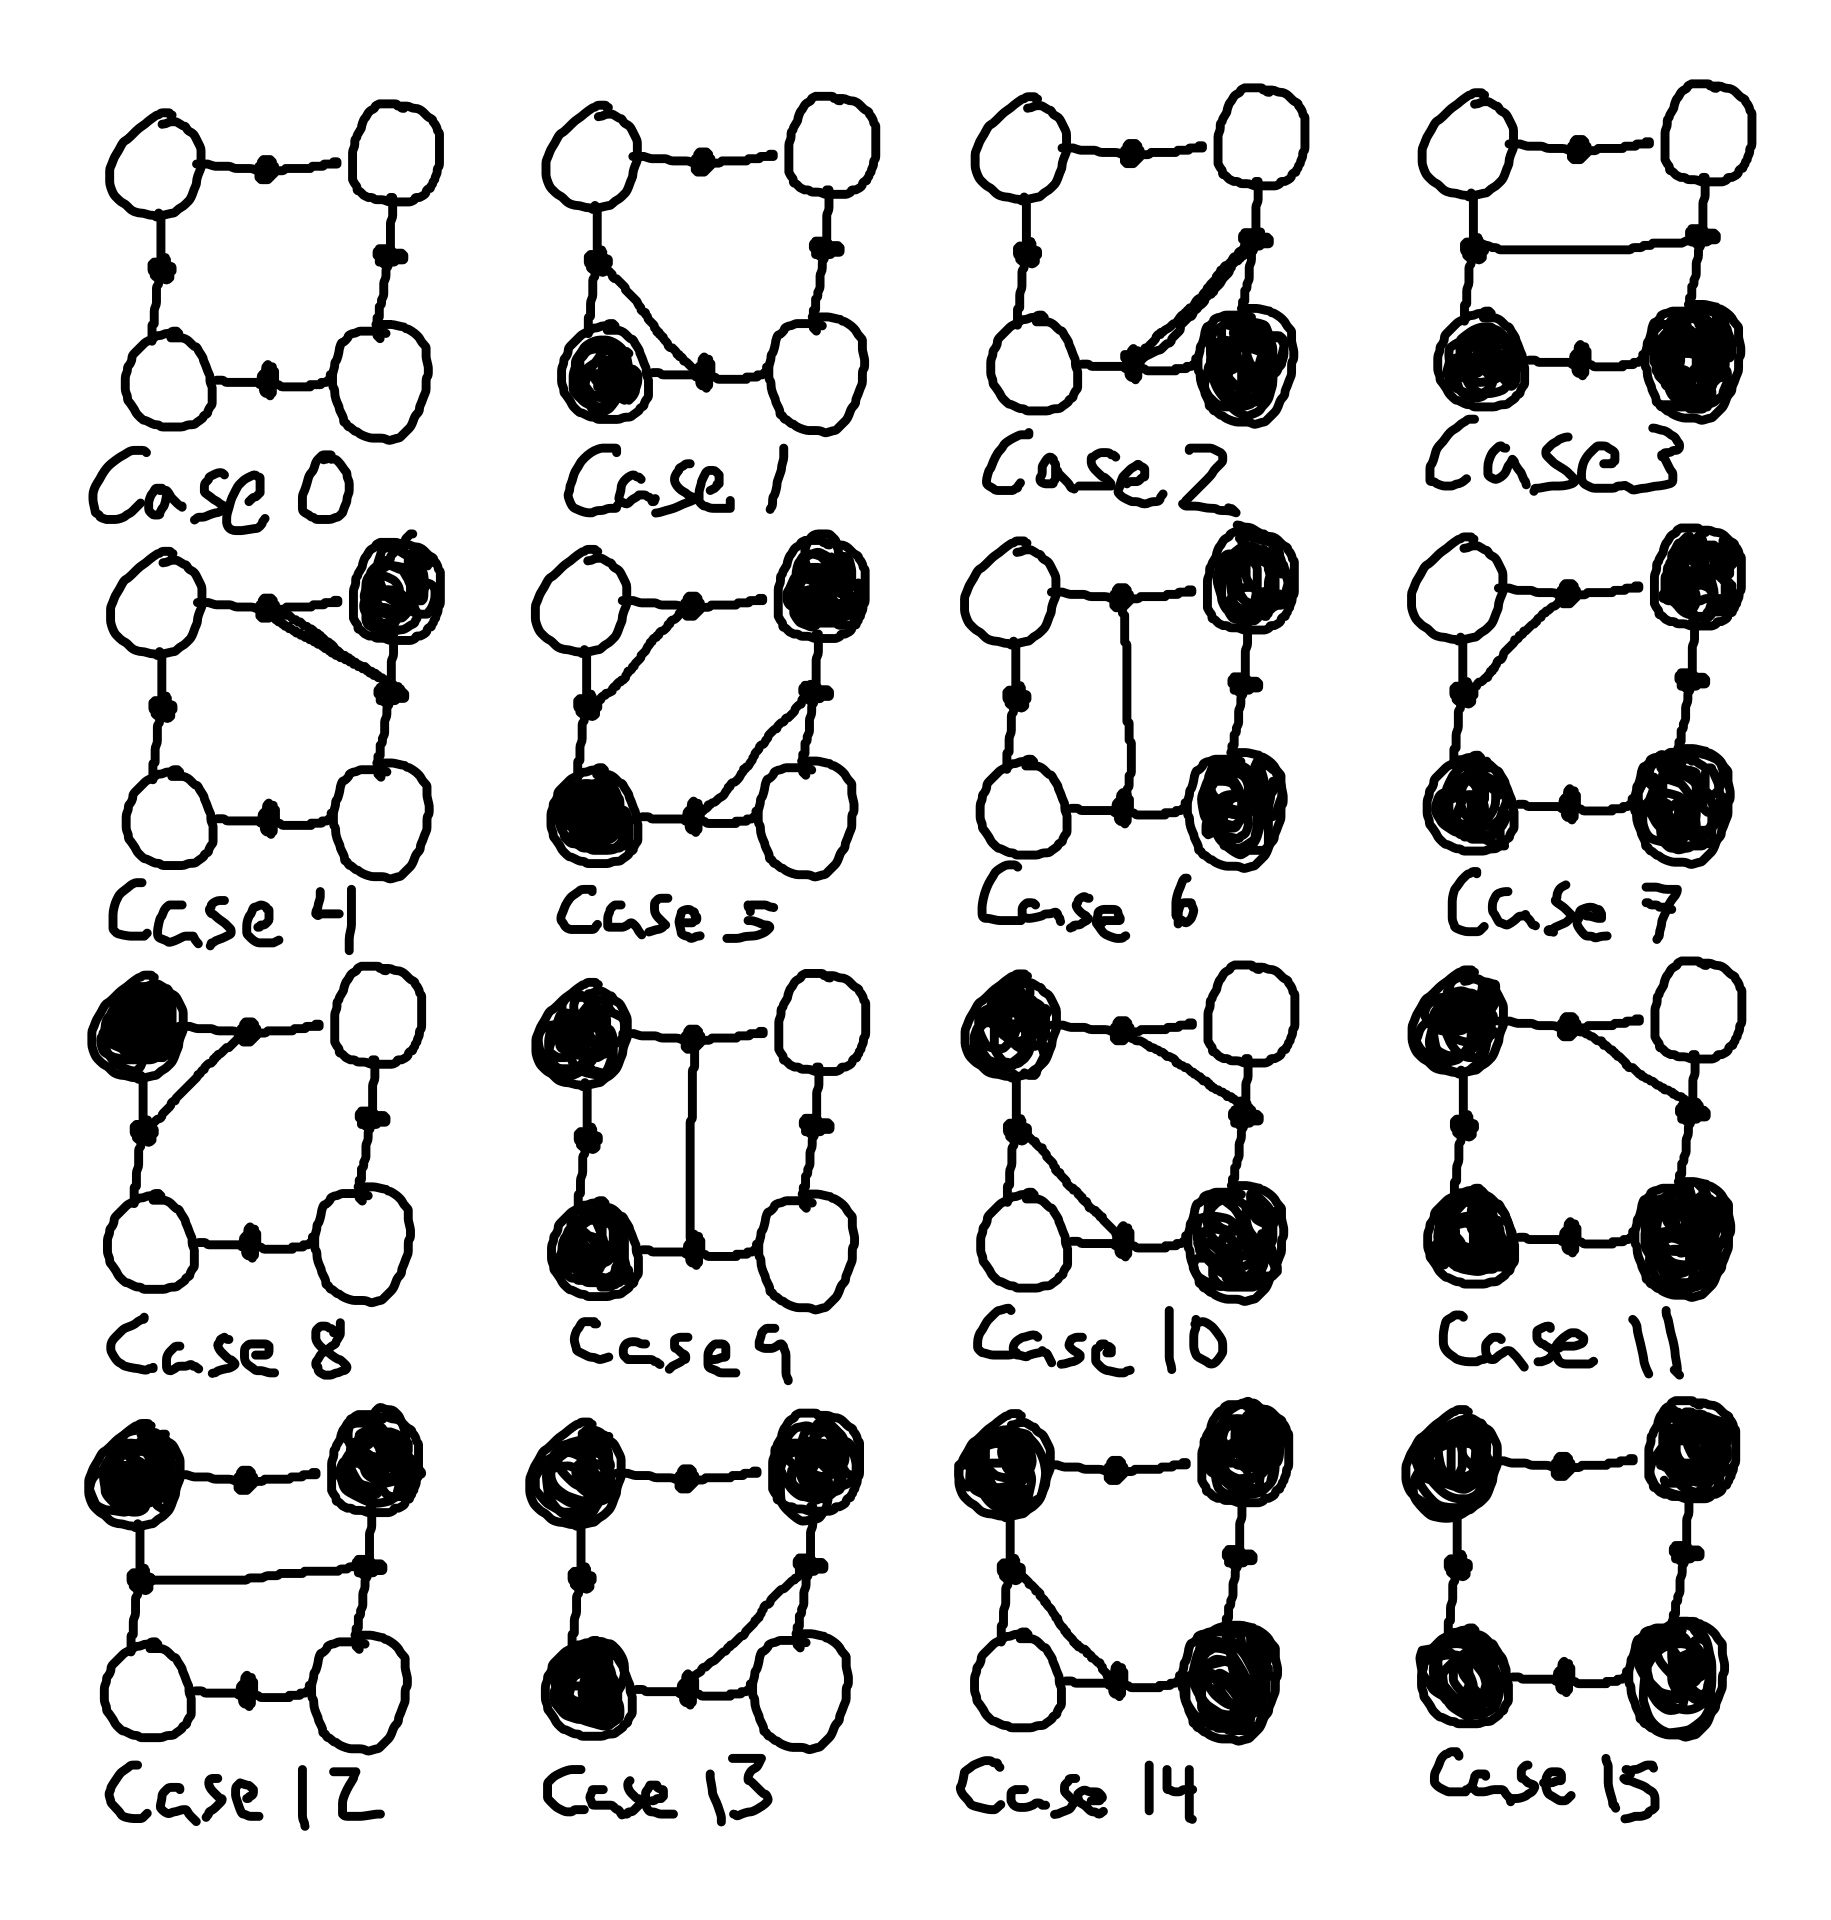 Case 0 Case 1 Case 2 Case 3
Case 4 Case 5 Case 6 Case 7
Case 8 Case 9 Case 10 Case 11
Case 12 Case 13 Case 14 Case 15